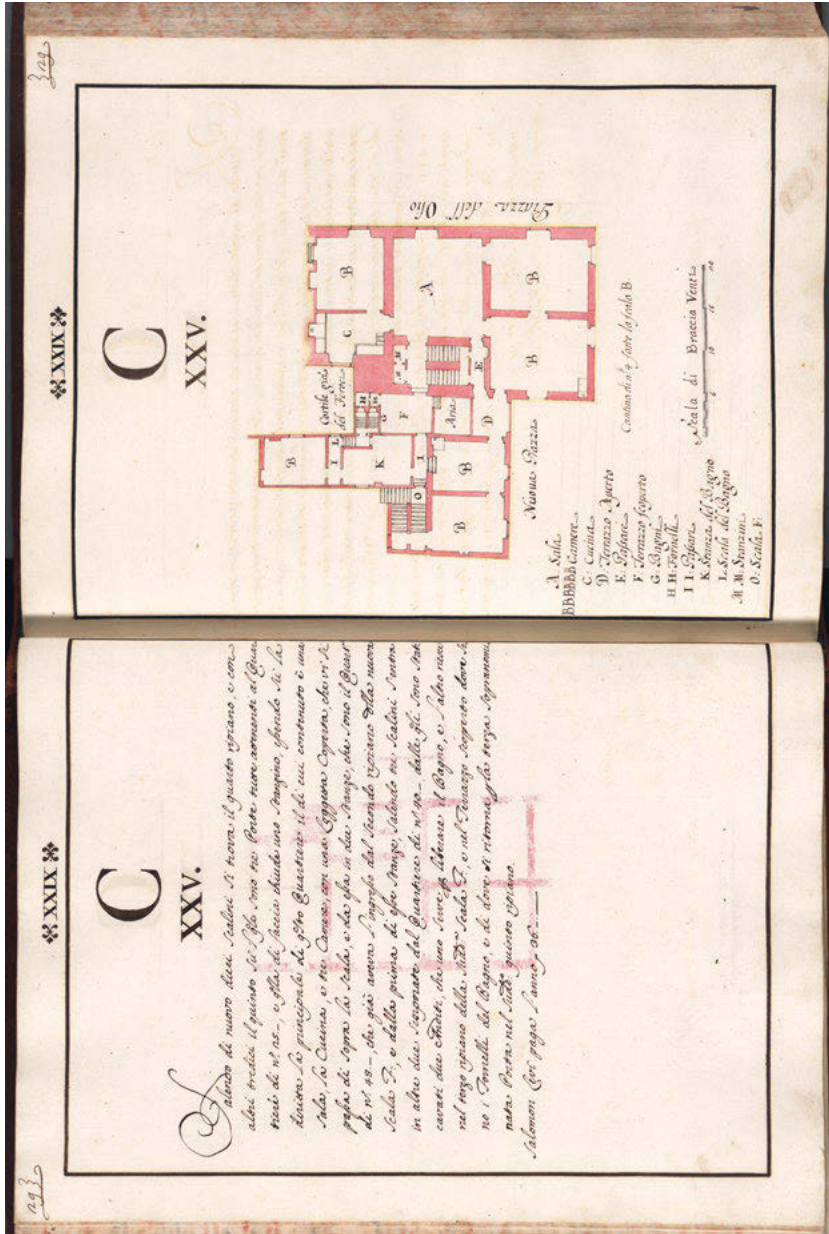 293
XXIX
C
XXV.
Salendo di nuovo dieci scalini si trova il quarto ripiano, e con
altri tredici il quinto sul qle sono tre Porte due attenenti al Quar
tiere di nº 25.–, e qlla di faccia chiude uno stanzino, essendo di la
diritta la principale di qsto Quartiere il di cui contenuto è una
sala, la Cucina, e tre Camere, con una Loggetta Coperta, che vi si
passa di sopra la scala, e da essa in due stanze, che sono il Quart
di nº 48–, che già aveva l'ingresso dal secondo ripiano della nuova
scala F, e dalla prima di esse stanze, salendo tre scalini s'entra
in altre due scorporate dal Quartiere di nº 40– dalle qli sono stati
cavati due Anditi, che uno serve p liberare il Bagno, e l'altro riesce
nel terzo ripiano della sudª scala F, e nel Terrazzo scoperto dove so
no i Fornelli del Bagno e di dove si ritorna p la terza sopranomi
nata Porta nel sudº quinto ripiano.
Salomon Levi paga l'anno 96–
329
XXIX
C
XXV.
Piazza dell' Olio
Cortile già del Feroci
Nuova Piazza
B
B
C
A
B
B
M
M
E
H
H
G
F
Aria
D
B
I
L
K
I
O
B
B
A Sala
BBBBBB Camere
C: Cucina
D: Terrazzo Aperto
E. Passare
F Terrazzo scoperto
G: Bagni
H H: Fornelli
I I: Passari
K Stanza del Bagno
L Scala del Bagno
M M. Stanzini
O: Scala F.
Cantina di nº 4 sotto la scala B.
Scala di Braccia Venti
5 10 15 20